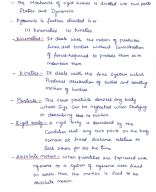 - The Mechanics of rigid bodies is divided into two parts
Statics and Dynamics
- Dynamics is further divided into
(i) Kinematics (ii) Kinetics
- Kinematics: It deals with the motion of particles,
lines and bodies without consideration
of forces required to produce them or to
maintain them
- Kinetics: It deals with the force system which
Produces of bodies and resulting
motion of bodies
- Particle: The term particle denotes any body
whose size can be neglected when
or describing its motion
- Rigid body: A rigid body is described by the
Condition that any two parts on the body
remain at fixed distance relative to
each other for all the time
- Absolute motion: When quantities are expressed with
reference to a system of reference axes fixed
on earth then the motion is said to be
absolute motion.